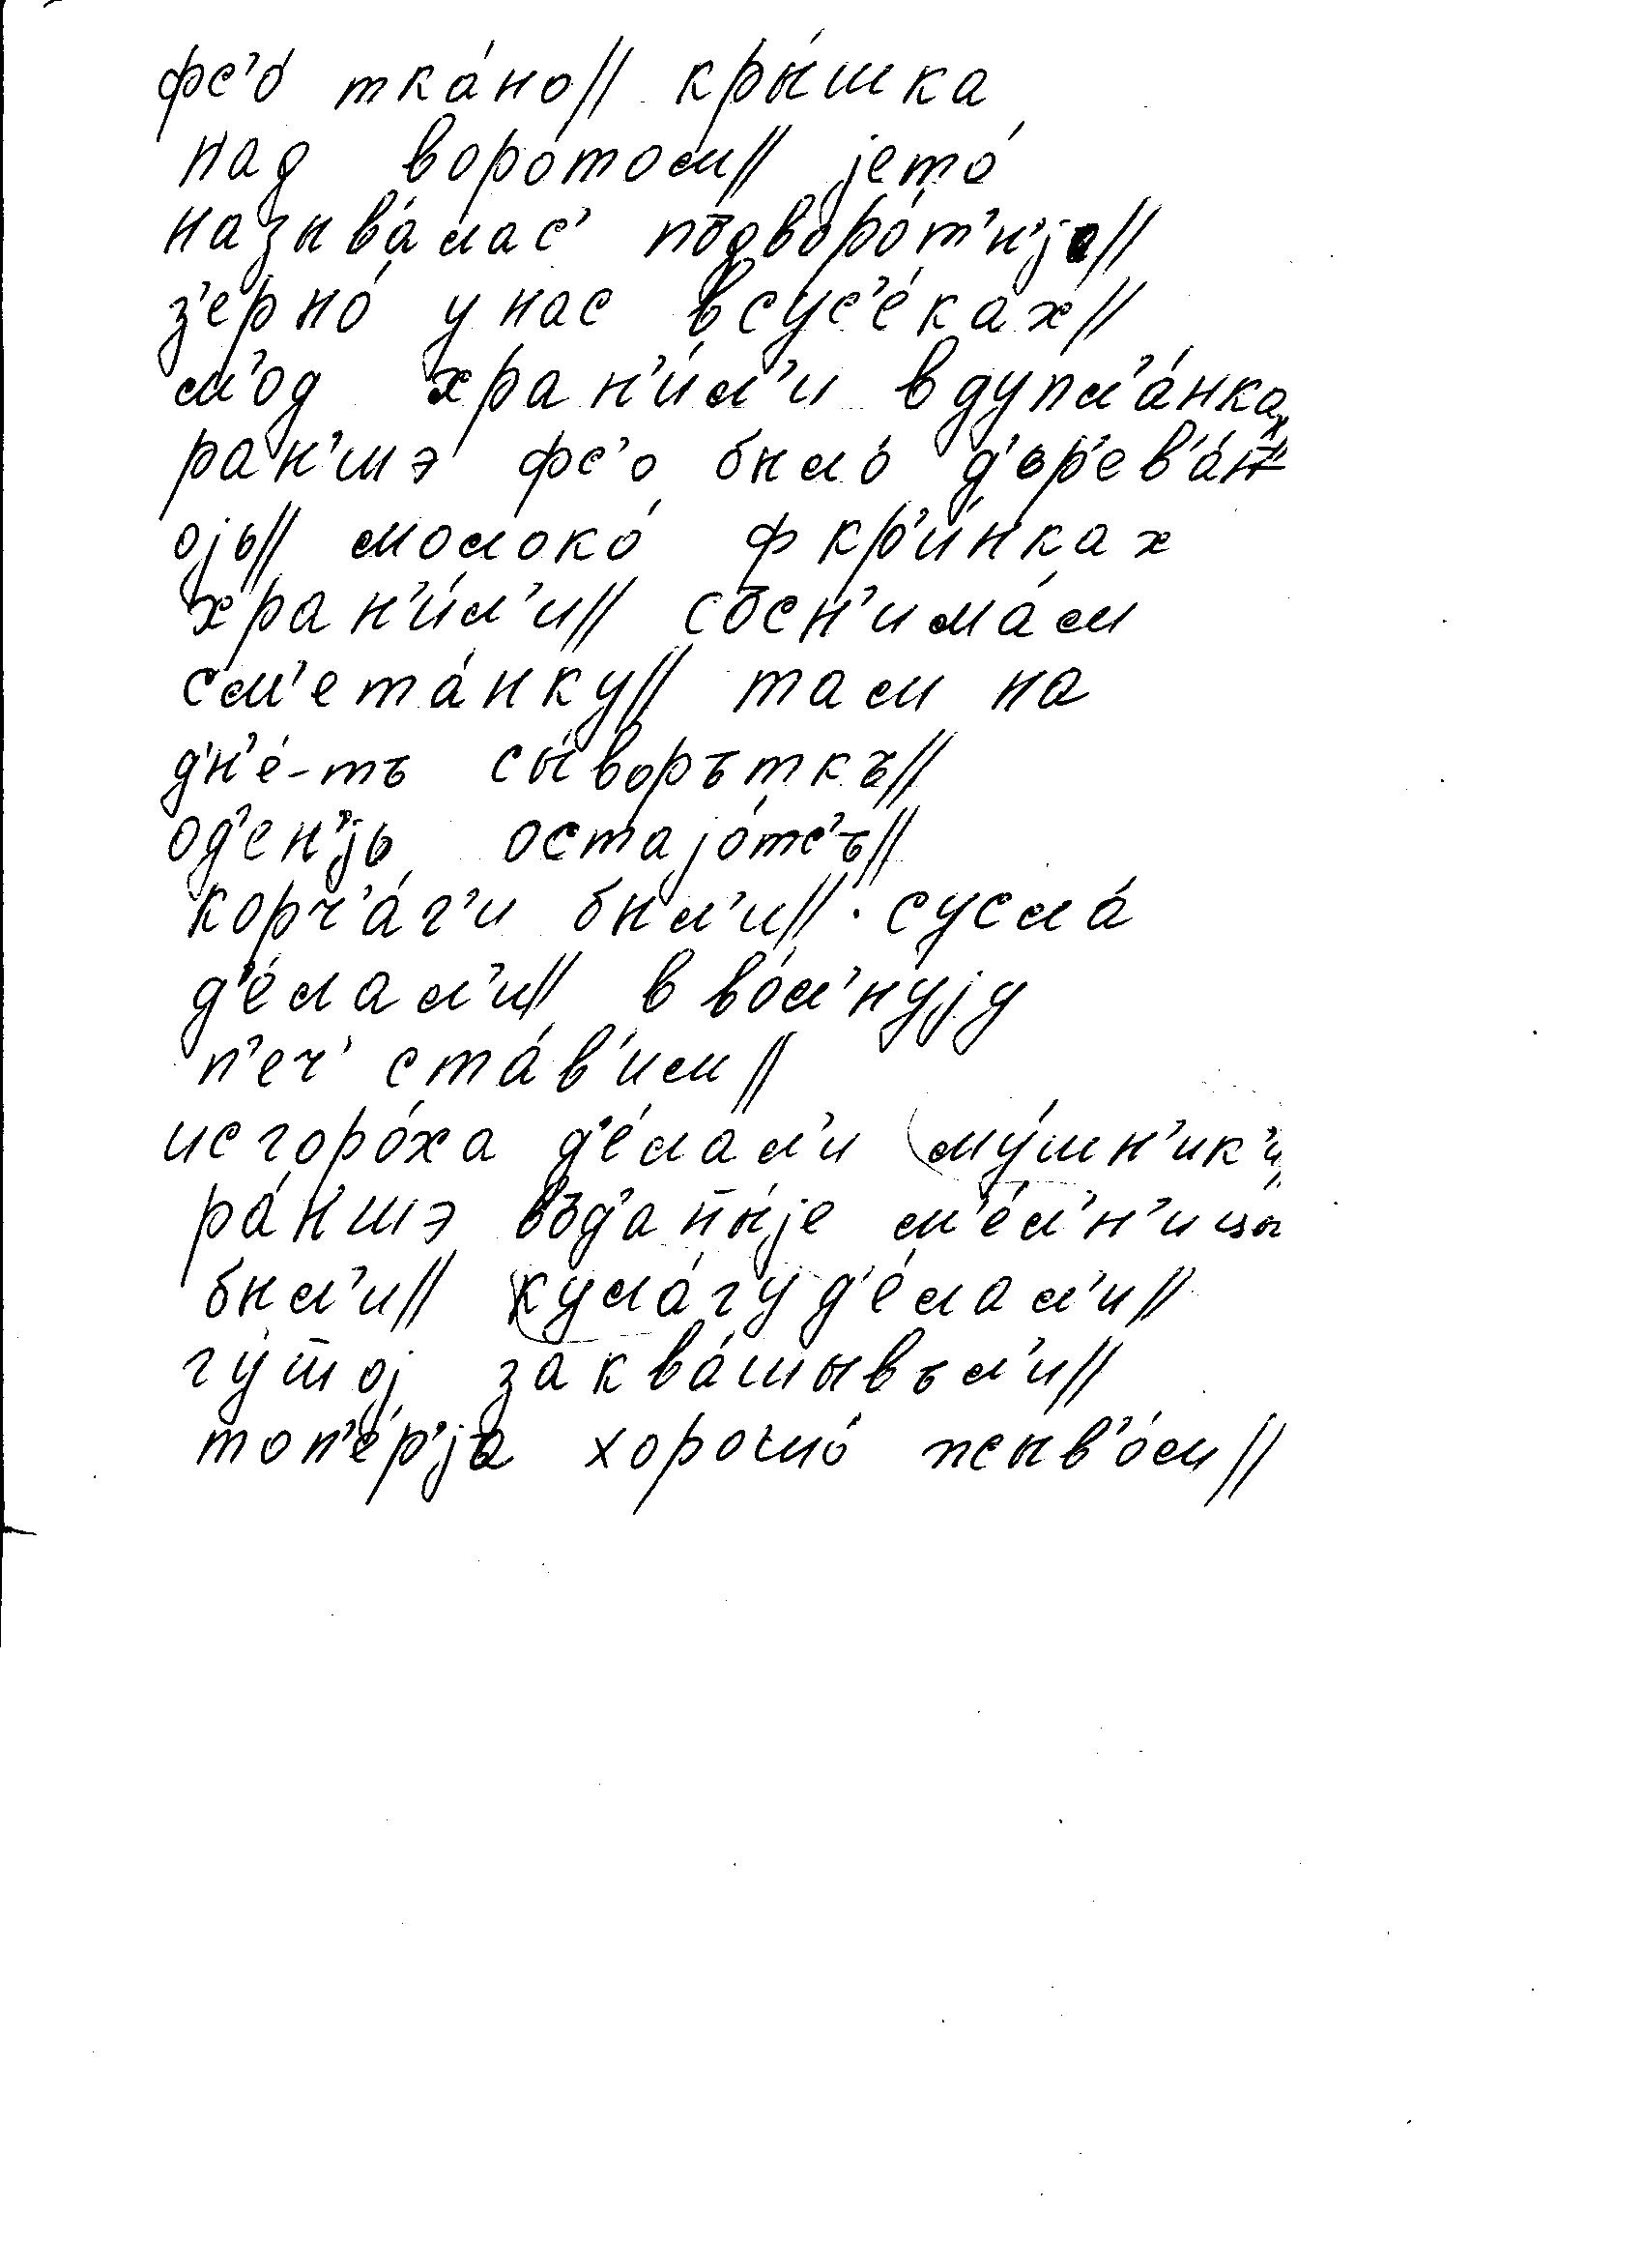 фс'о́ тка́но// кры́шка
над воро́том// jето́
называ́лас' пъдворо́т'н'jа//
з'ерно́ у нас в сус'е́ках//
м'од хран'и́л'и в дупл'а́нках
ран'шэ фс'о было́ д'ьр'ев'а́н̄
оjь// молоко́ ф кр'и́нках
хран'и́л'и// съсн'има́м
см'ета́нку// там на
дн'е́-тъ сы́воръткъ//
од'ен'jь остаjо́тс'ъ//
корч'а́г'и был'и// сусла́
д'е́лал'и// в во́л'нуjу
п'еч' ста́в'им//
ис горо́ха д'е́лал'и му́шн'ик'и
ра́н'шэ въд'аны́jе м'е́л'н'ицы
был'и// кула́гу д'е́лал'и//
гу́шоj заква́шывъл'и//
топ'е́р'jа хорошо́ жыв'о́м//